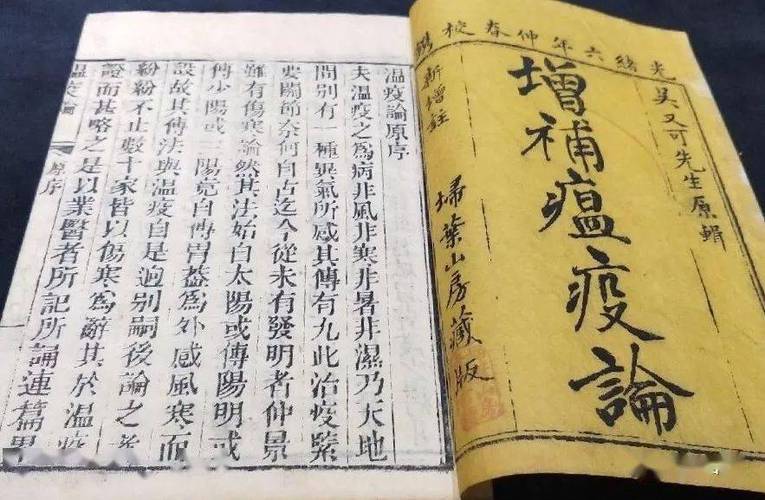 光緒六年仲春校
吳又可先生原輯
增補瘟疫論
新增註
掃葉山房藏版
溫疫論原序
夫溫疫之爲病非風非寒非暑非濕乃天地
間別有一種異氣所感其傳有九此治疫緊
要關節奈何自古迄今從未有發明者仲景
雖有傷寒論然其法始自太陽或傳陽明或
傳少陽或三陽竟自傳胃葢爲外感風寒而
設故其傳法與溫疫自是逈別嗣後論之者
紛紛不止數十家皆以傷寒爲辭其於溫疫
證而甚略之是以業醫者所記所誦連篇累
溫疫論
原序